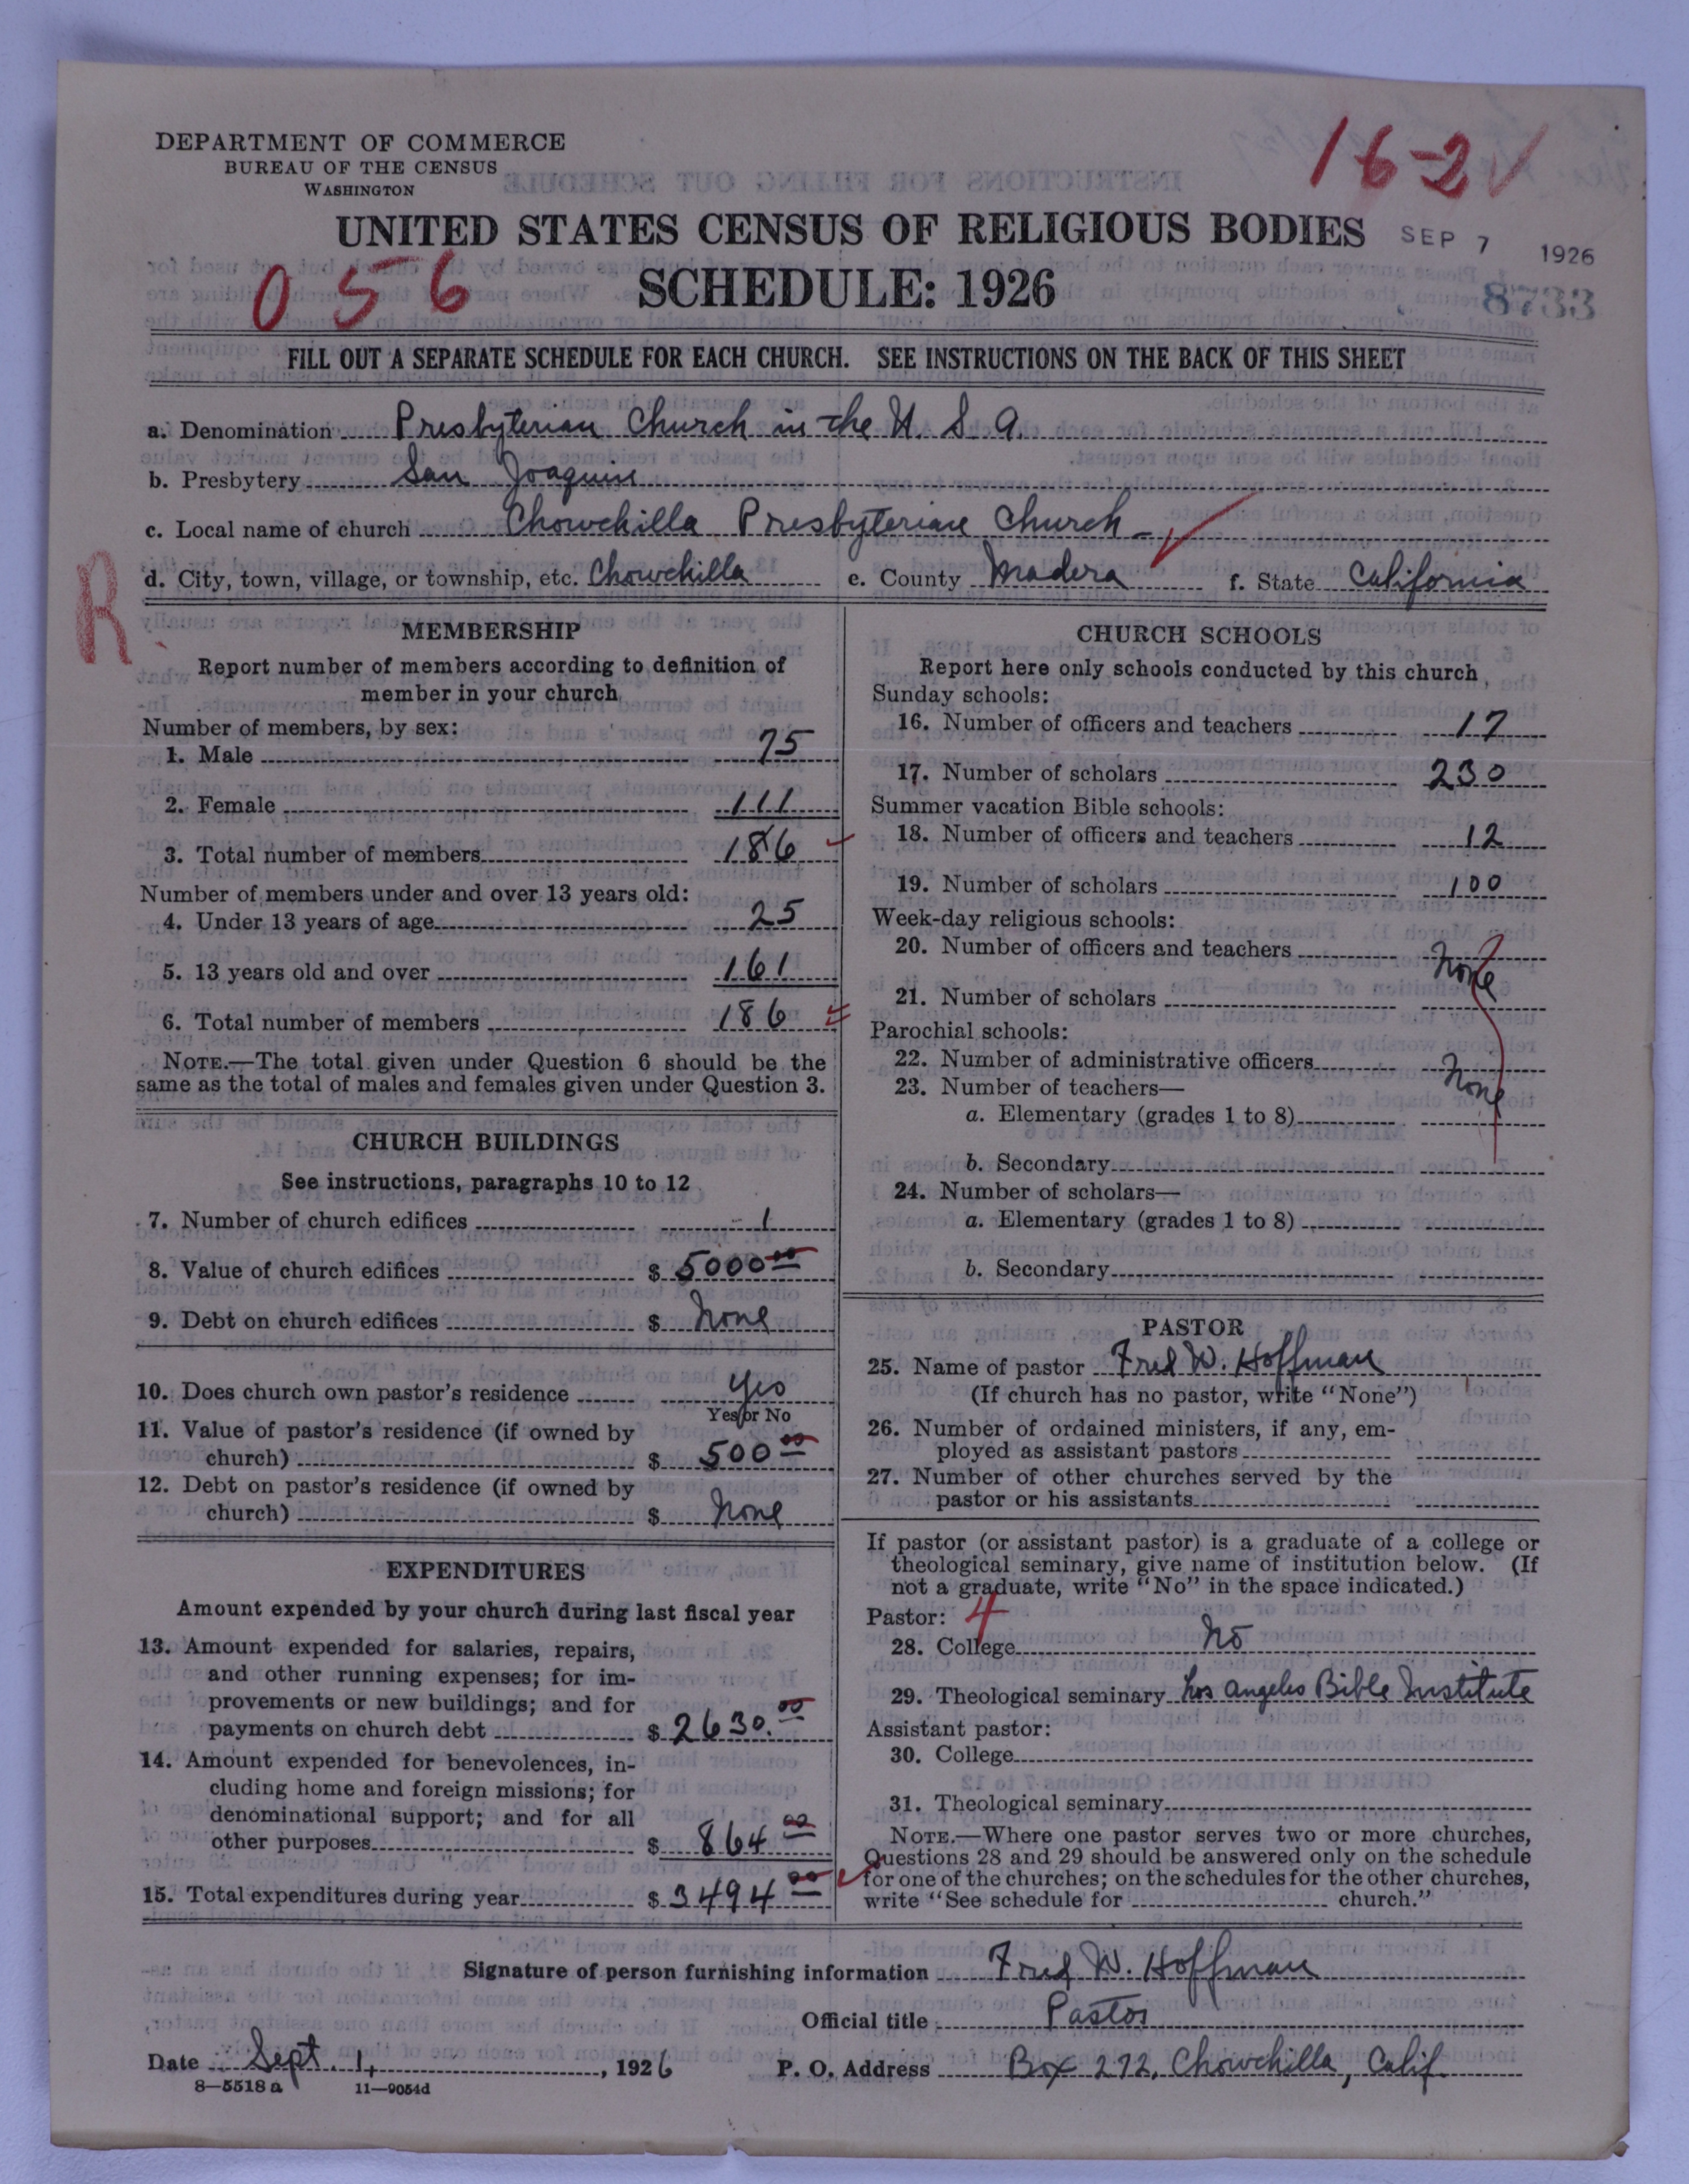 DEPARTMENT OF COMMERCE
BUREAU OF THE CENSUS
WASHINGTON
16-2
UNITED STATES CENSUS OF RELIGIOUS BODIES
SEP 7 1926
056
SCHEDULE: 1926
8733
FILL OUT A SEPARATE SCHEDULE FOR EACH CHURCH. SEE INSTRUCTIONS ON THE BACK OF THIS SHEET
a. Denomination Presbyterian Church in the U. S. A.
b. Presbytery San Joaquin
c. Local name of church Chowchilla Presbyterian Church
d. City, town, village, or township, etc. Chowchilla e. County Madera f. State California
R
MEMBERSHIP
Report number of members according to definition of
member in your church
Number of members, by sex:
1. Male 75
2. Female 111
3. Total number of members 186
Number of members under and over 13 years old:
4. Under 13 years of age 25
5. 13 years old and over 161
6. Total number of members 186
NOTE.—The total given under Question 6 should be the
same as the total of males and females given under Question 3.
CHURCH BUILDINGS
See instructions, paragraphs 10 to 12
7. Number of church edifices 1
8. Value of church edifices $ 5000.00
9. Debt on church edifices $ None
10. Does church own pastor's residence Yes
Yes or No
11. Value of pastor's residence (if owned by
church) $ 500.00
12. Debt on pastor's residence (if owned by
church) $ None
EXPENDITURES
Amount expended by your church during last fiscal year
13. Amount expended for salaries, repairs,
and other running expenses; for im-
provements or new buildings; and for
payments on church debt $ 2630.00
14. Amount expended for benevolences, in-
cluding home and foreign missions; for
denominational support; and for all
other purposes $ 864.00
15. Total expenditures during year $ 3494.00
CHURCH SCHOOLS
Report here only schools conducted by this church
Sunday schools:
16. Number of officers and teachers 17
17. Number of scholars 230
Summer vacation Bible schools:
18. Number of officers and teachers 12
19. Number of scholars 100
Week-day religious schools:
20. Number of officers and teachers None
21. Number of scholars
Parochial schools:
22. Number of administrative officers None
23. Number of teachers—
a. Elementary (grades 1 to 8)
b. Secondary
24. Number of scholars—
a. Elementary (grades 1 to 8)
b. Secondary
PASTOR
25. Name of pastor Fred W. Hoffman
(If church has no pastor, write "None")
26. Number of ordained ministers, if any, em-
ployed as assistant pastors
27. Number of other churches served by the
pastor or his assistants
If pastor (or assistant pastor) is a graduate of a college or
theological seminary, give name of institution below. (If
not a graduate, write "No" in the space indicated.)
Pastor: 4
28. College No
29. Theological seminary Los Angeles Bible Institute
Assistant pastor:
30. College
31. Theological seminary
NOTE.—Where one pastor serves two or more churches,
Questions 28 and 29 should be answered only on the schedule
for one of the churches; on the schedules for the other churches,
write "See schedule for church."
Signature of person furnishing information Fred W. Hoffman
Official title Pastor
Date Sept. 1, 1926 P. O. Address Box 272, Chowchilla, Calif.
8—5518a 11—9054d